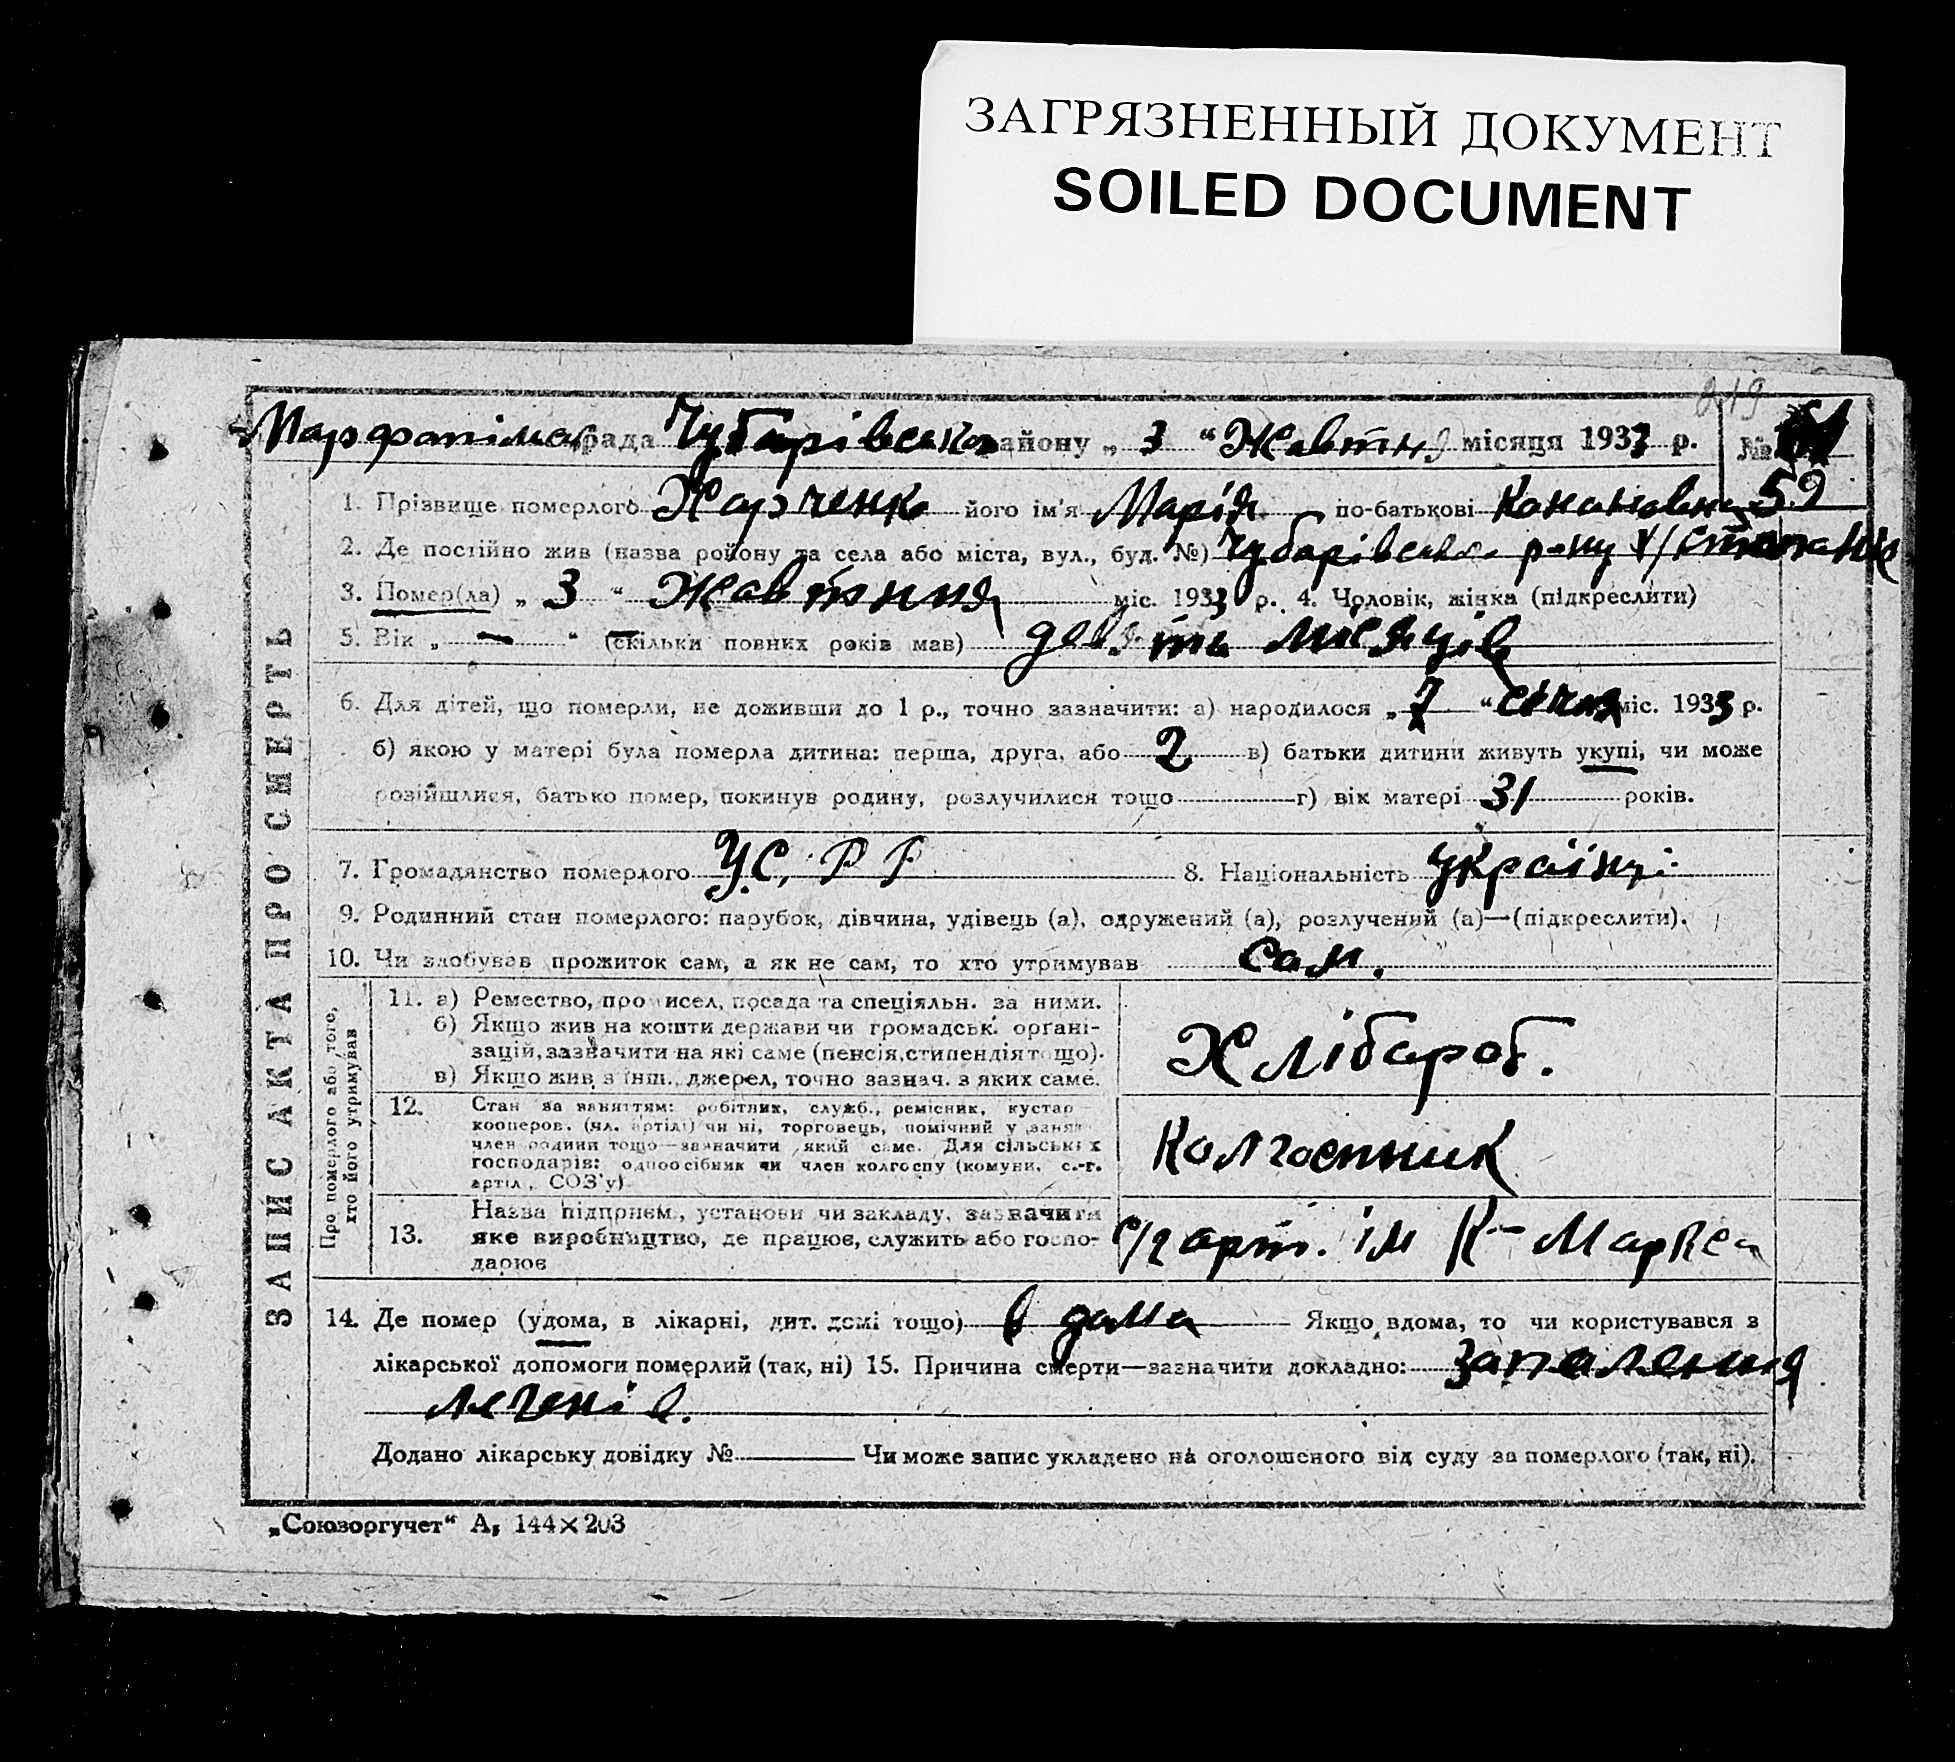 ЗАГРЯЗНЕННЫЙ ДОКУМЕНТ
SOILED DOCUMENT
219
Марфопільск рада Чубарівсько району „ 3 “ Жовтня місяця 1933 р. №
59
1. Прізвище померлого Харченко його ім'я Марія по-батькові Кононовна
2. Де постійно жив (назва району та села або міста, вул., буд. №) Чубарівсько р-ну
3. Помер(ла) „ 3 “ Жовтння міс. 1933 р. 4. Чоловік, жінка (підкреслити)
5. Вік „ — “ (скільки повних років мав) дев. ть місяців
6. Для дітей, що померли, не доживши до 1 р., точно зазначити: а) народилося „ 7 “ січня міс. 1933 р.
б) якою у матері була померла дитина: перша, друга, або 2 в) батьки дитини живуть укупі, чи може
розійшлися, батько помер, покинув родину, розлучилися тощо г) вік матері 31 років.
7. Громадянство померлого У.С.Р Р 8. Національність україн.
9. Родинний стан померлого: парубок, дівчина, удівець (а), одружений (а), розлучений (а)—(підкреслити).
10. Чи здобував прожиток сам, а як не сам, то хто утримував сам.
ЗАПИС АКТА ПРО СМЕРТЬ
Про померлого або того, хто його утримував
11. а) Ремество, промисел, посада та спеціяльн. за ними.
б) Якщо жив на кошти держави чи громадськ. органі-
зацій, зазначити на які саме (пенсія, стипендія тощо).
в) Якщо жив з інш. джерел, точно зазнач. з яких саме.
Хлібароб.
12. Стан за заняттям: робітник, служб., ремісник, кустар
кооперов. (чл. артілі) чи ні, торговець, помічний у занят
член родини тощо—зазначити який саме. Для сільських
господарів: одноосібник чи член колгоспу (комуни, с.-г.
артіл, СОЗ'у)
Колгоспник
13. Назва підприєм., установи чи закладу, зазначити
яке виробництво, де працює, служить або госпо-
дарює
с/г арт. ім К-Маркса
14. Де помер (удома, в лікарні, дит. домі тощо) в дома Якщо вдома, то чи користувався з
лікарської допомоги померлий (так, ні) 15. Причина смерти—зазначити докладно: запалення
легенів.
Додано лікарську довідку № Чи може запис укладено на оголошеного від суду за померлого (так, ні).
„Союзоргучет“ А, 144×203